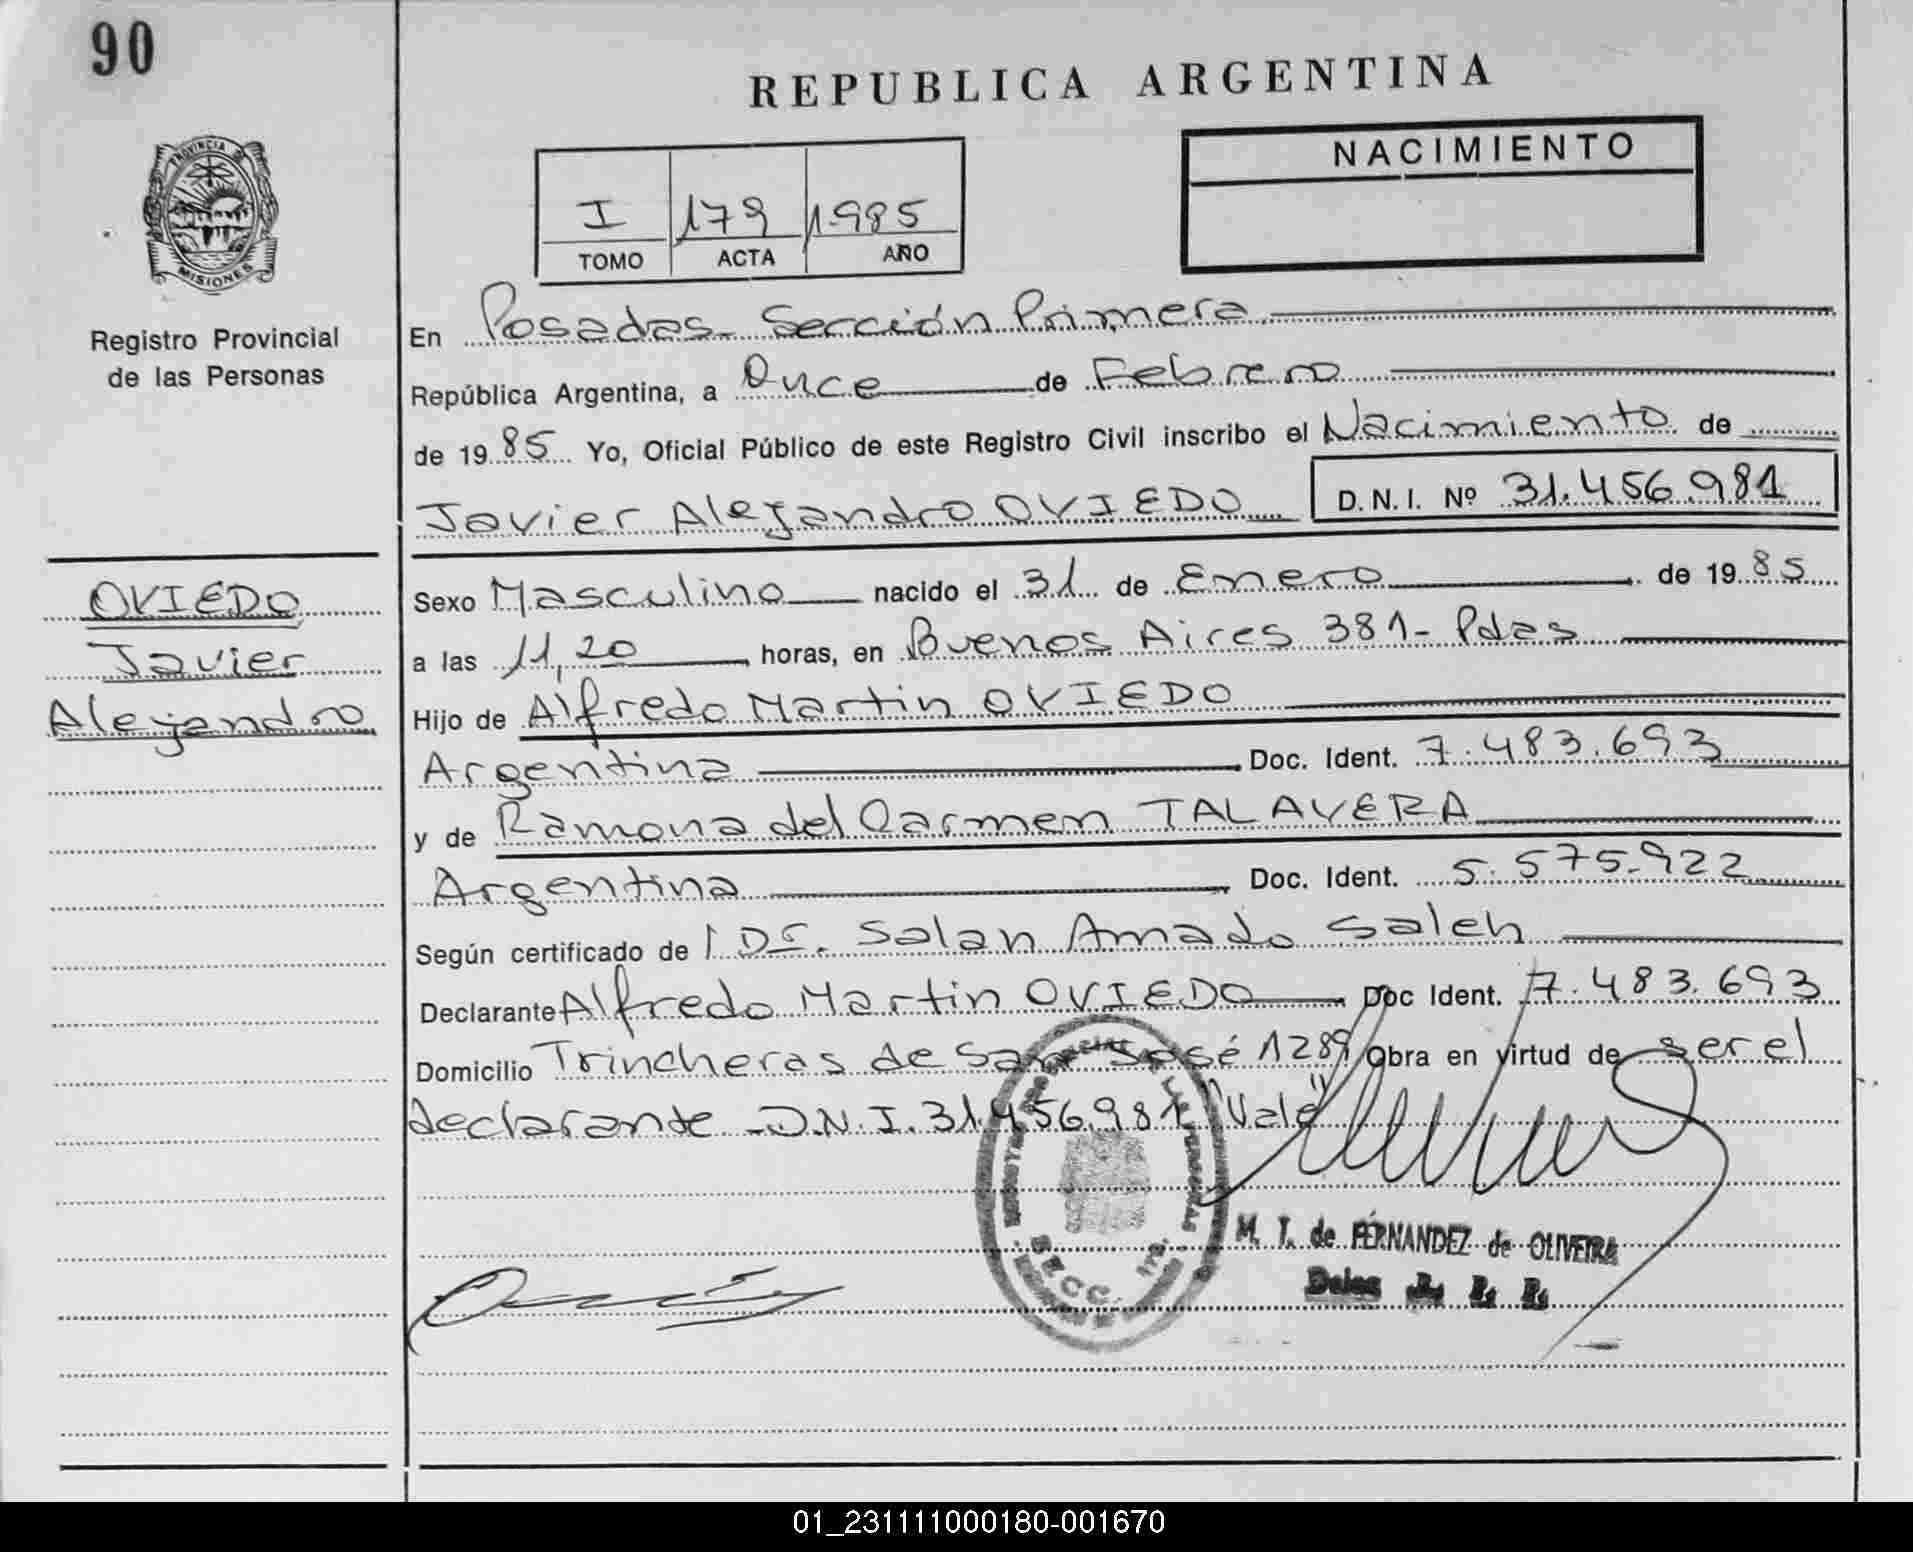 90
REPUBLICA ARGENTINA
NACIMIENTO
I 179 1985
TOMO ACTA AÑO
PROVINCIA DE
MISIONES
Registro Provincial
de las Personas
En Posadas- Sección Primera
República Argentina, a Once de Febrero
de 1985 Yo, Oficial Público de este Registro Civil inscribo el Nacimiento de
Javier Alejandro OVIEDO D.N.I. Nº 31.456.981
OVIEDO
Javier
Alejandro
Sexo Masculino nacido el 31 de Enero de 1985
a las 11,20 horas, en Buenos Aires 381- Pdas
Hijo de Alfredo Martin OVIEDO
Argentina Doc. Ident. 7.483.693
y de Ramona del Carmen TALAVERA
Argentina Doc. Ident. 5.575.922
Según certificado de Dr. Salan Amado Saleh
Declarante Alfredo Martin OVIEDO Doc Ident. 7.483.693
Domicilio Trincheras de San José 1289 Obra en virtud de ser el
declarante -D.N.I. 31.456.981 "Vale"
SECC. 1ra.
M. T. de FERNANDEZ de OLIVEIRA
01_231111000180-001670